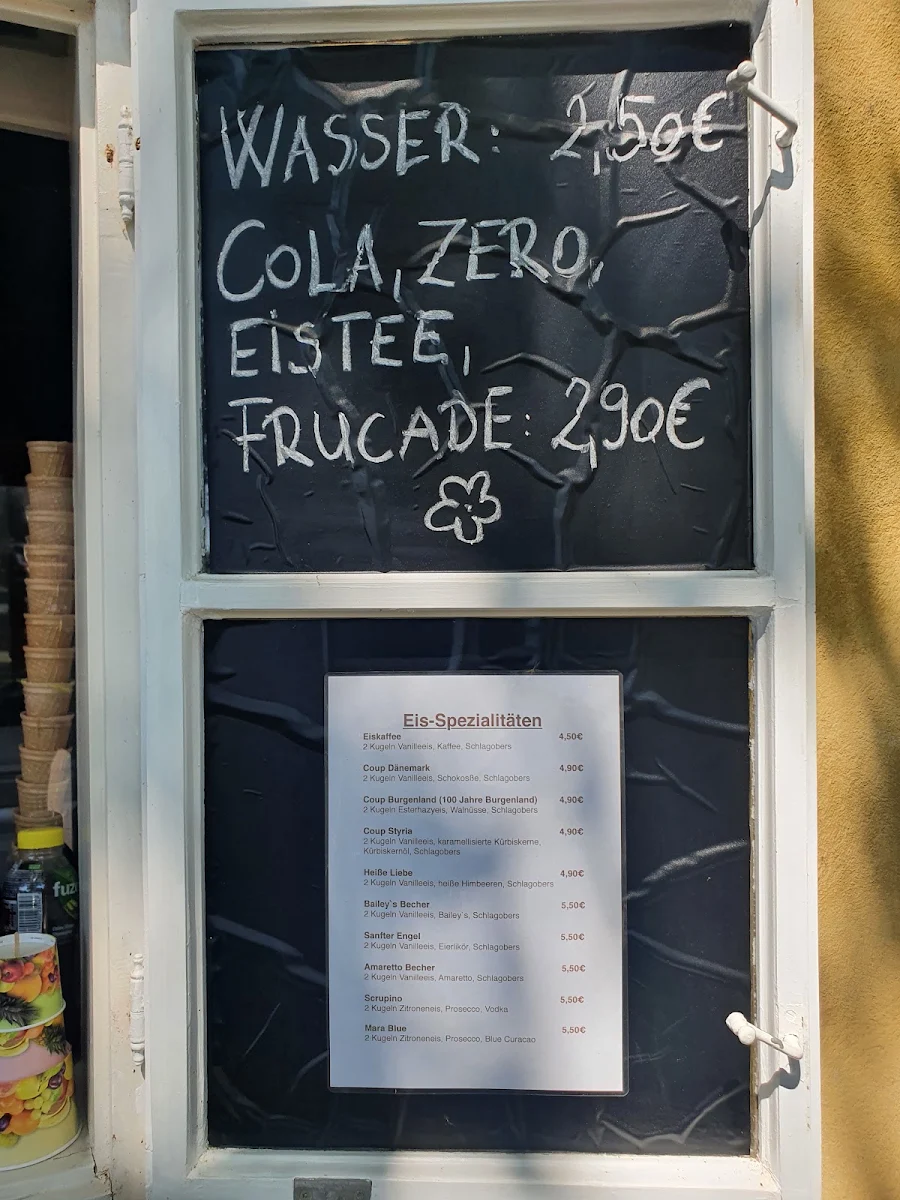 WASSER: 2,50€
COLA, ZERO,
EISTEE,
FRUCADE: 2,90€
Eis-Spezialitäten
Eiskaffee 4,50€
2 Kugeln Vanilleeis, Kaffee, Schlagobers
Coup Dänemark 4,90€
2 Kugeln Vanilleeis, Schokosße, Schlagobers
Coup Burgenland (100 Jahre Burgenland) 4,90€
2 Kugeln Esterhazyeis, Walnüsse, Schlagobers
Coup Styria 4,90€
2 Kugeln Vanilleeis, karamellisierte Kürbiskerne,
Kürbiskernöl, Schlagobers
Heiße Liebe 4,90€
2 Kugeln Vanilleeis, heiße Himbeeren, Schlagobers
Bailey`s Becher 5,50€
2 Kugeln Vanilleeis, Bailey`s, Schlagobers
Sanfter Engel 5,50€
2 Kugeln Vanilleeis, Eierlikör, Schlagobers
Amaretto Becher 5,50€
2 Kugeln Vanilleeis, Amaretto, Schlagobers
Scrupino 5,50€
2 Kugeln Zitroneneis, Prosecco, Vodka
Mara Blue 5,50€
2 Kugeln Zitroneneis, Prosecco, Blue Curacao
fuze